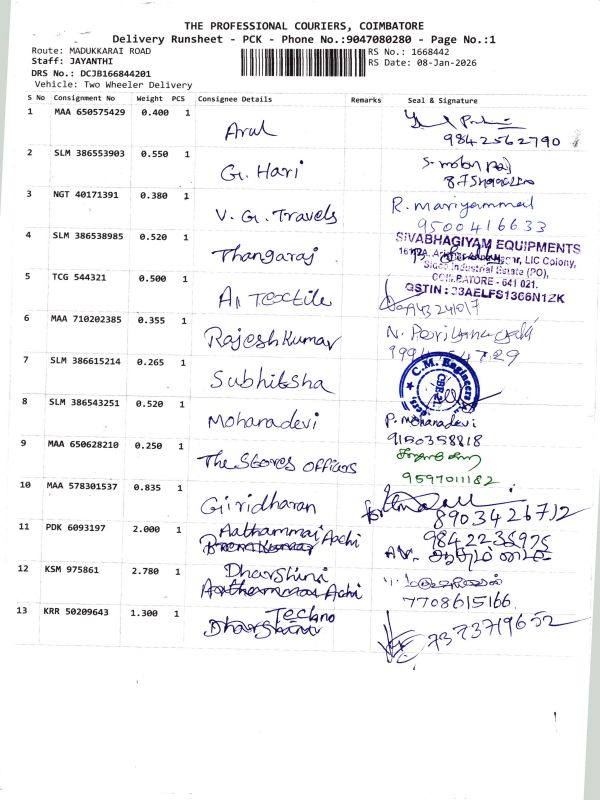 THE PROFESSIONAL COURIERS, COIMBATORE
Delivery Runsheet - PCK - Phone No.:9047080280 - Page No.:1
Route: MADUKKARAI ROAD
RS No.: 1668442
Staff: JAYANTHI
RS Date: 08-Jan-2026
DRS No.: DCJB166844201
Vehicle: Two Wheeler Delivery
S No Consignment No Weight PCS Consignee Details Remarks Seal & Signature
1 MAA 650575429 0.400 1 Arul
9842562790
2 SLM 386553903 0.550 1 G. Hari
3 NGT 40171391 0.380 1 V. G. Travels R. mariyammal
9500416633
4 SLM 386538985 0.520 1 Thangaraj
SIVABHAGIYAM EQUIPMENTS
LIC Colony,
Industrial Estate (PO),
COIMBATORE - 641 021.
GSTIN : 33AELFS1366N1ZK
5 TCG 544321 0.500 1 A1 Textile
6 MAA 710202385 0.355 1 RajeshKumar N.
7 SLM 386615214 0.265 1 Subhiksha
C.M. Engineers
CBE-21.
8 SLM 386543251 0.520 1 Mohanadevi P. mohanadevi
9150358818
9 MAA 650628210 0.250 1 The Stores officers
9597011182
10 MAA 578301537 0.835 1 Giridharan for
8903426712
11 PDK 6093197 2.000 1 Aathammai Aachi
9842235975
12 KSM 975861 2.780 1 Dharshini
7708615166
13 KRR 50209643 1.300 1 Techno
7373719652